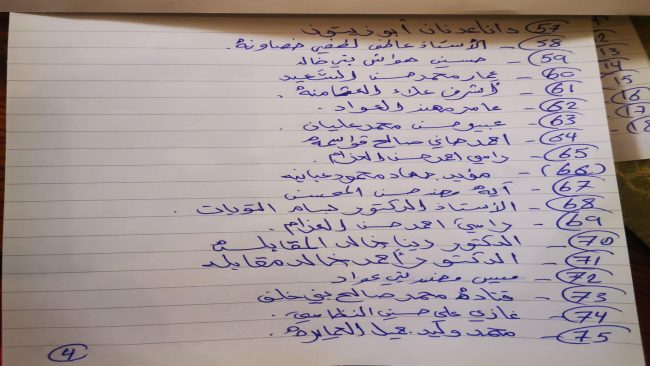 57 دانا عدنان أبو زيتون
58 - الأستاذ عاطف خصاونة.
59 - حسين هواش بني خالد
60 - عمار محمد حسن السعيد
61 - أشرف علاء العثامنة.
62 - عامر مهند العواد.
63 - عبير حسن محمد عليان.
64 - احمد هاني صالح قواسمة
65 - رامي احمد حسن العزام.
(66) - مؤيد جهاد محمود عبابنه
67 - آية مهند حسن المحسن
68 - الأستاذ الدكتور بسام
69 - رامي احمد حسن العزام.
70 - الدكتور دينا خالد المقابلة
71 - الدكتور أحمد خالد مقابله
72 - ميس مهند بني عواد
73 - قتادة محمد صالح بني خلف
74 - غازي علي حسين
75 - محمد وليد جميل العمايرة.
4
12
13
14
15
16
17
18